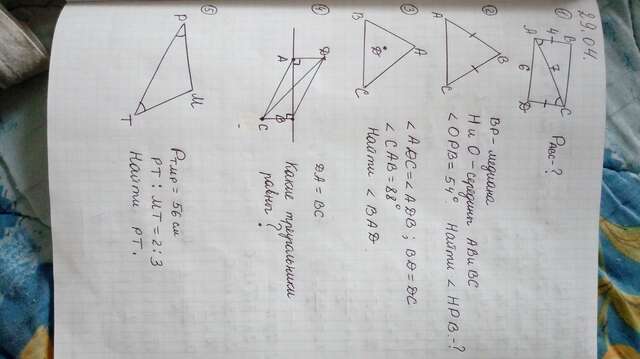 29.04.
①
B
A
4
7
6
D
C
P_ADC - ?
②
A
B
C
BP - медиана
H и O - середины AB и BC
<OPB = 54°. Найти <HPB - ?
③
B
A
D
C
<ADC = <ADB; BD = DC
<CAB = 88°
Найти <BAD
④
A
D
C
B
DA = BC
Какие треугольники
равны?
⑤
P
M
T
P_TMP = 56 см
PT : MT = 2 : 3
Найти PT.